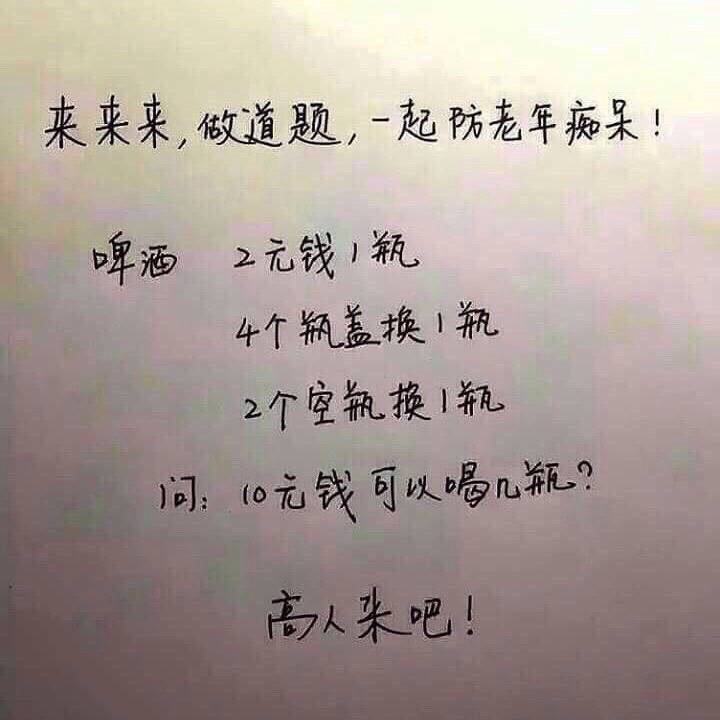 来来来,做道题,一起防老年痴呆!
啤酒 2元钱1瓶
4个瓶盖换1瓶
2个空瓶换1瓶
问:10元钱可以喝几瓶?
高人来吧!